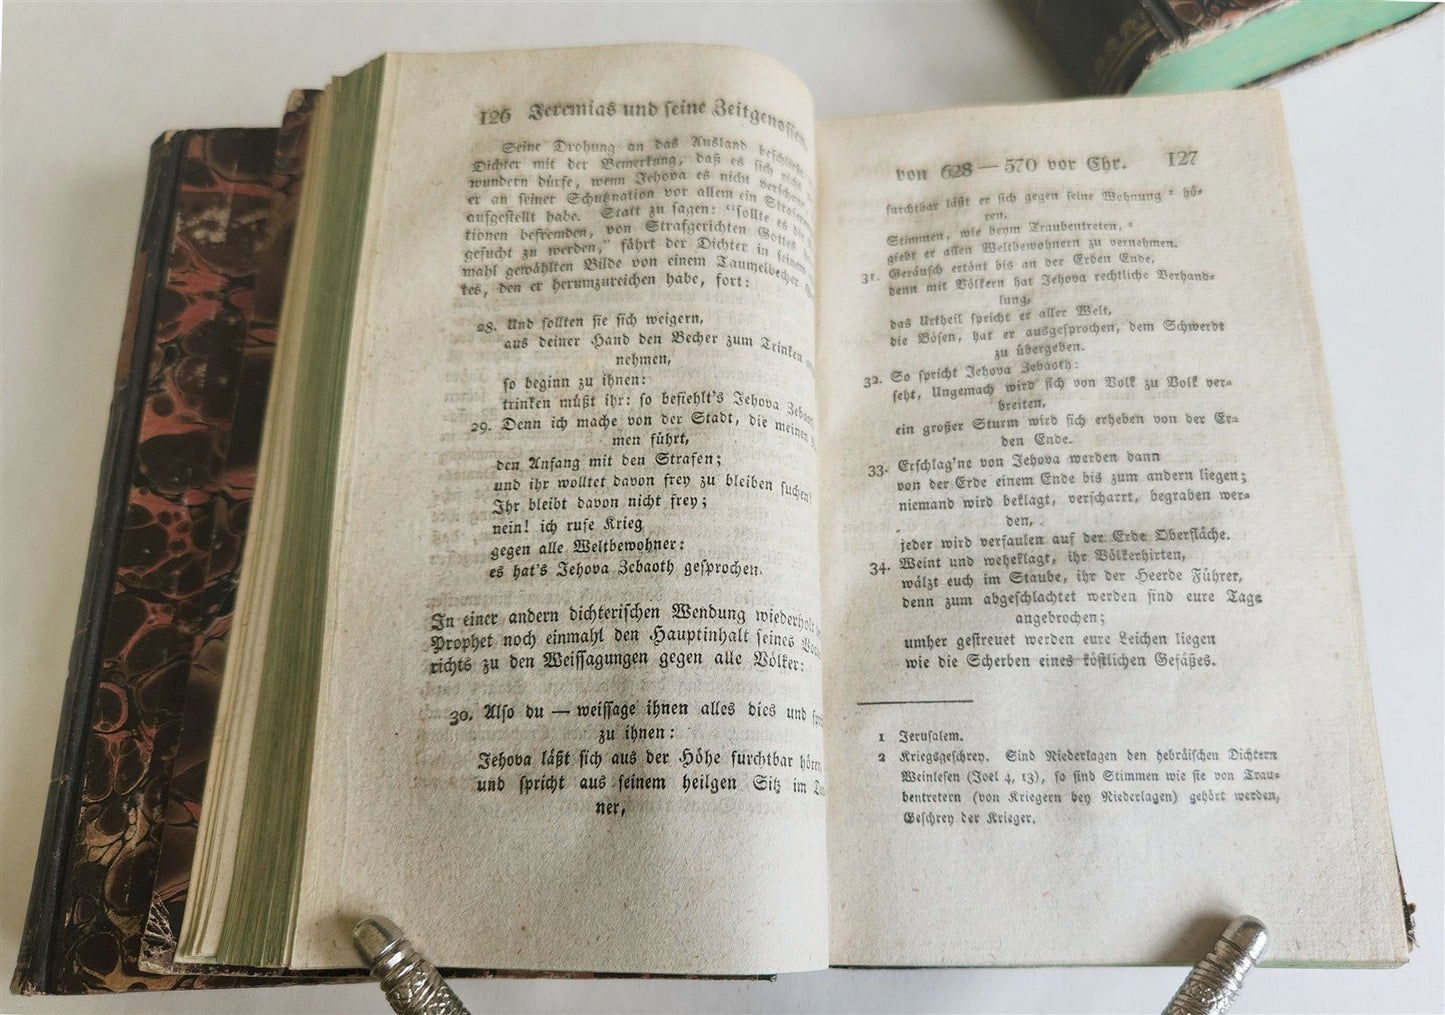 126 Jeremias und seine Zeitgenossen
Seine Drohung an das Ausland beschließt
Dichter mit der Bemerkung, daß es sich nicht
wundern dürfe, wenn Jehova es nicht verschone
er an seiner Schutznation vor allem ein
aufgestellt habe. Statt zu sagen: "sollte es die
tionen befremden, von Strafgerichten Gottes
gesucht zu werden," fährt der Dichter in seinem
mahl gewählten Bilde von einem Taumelbecher
kes, den er herumzureichen habe, fort:
28. Und sollten sie sich weigern,
aus deiner Hand den Becher zum Trinken
nehmen,
so beginn zu ihnen:
trinken müßt ihr: so befiehlt's Jehova Zebaoth
29. Denn ich mache von der Stadt, die meinen
men führt,
den Anfang mit den Strafen;
und ihr wolltet davon frey zu bleiben suchen?
Ihr bleibt davon nicht frey;
nein! ich rufe Krieg
gegen alle Weltbewohner:
es hat's Jehova Zebaoth gesprochen.
In einer andern dichterischen Wendung wiederholt
Prophet noch einmahl den Hauptinhalt seines
richts zu den Weissagungen gegen alle Völker:
30. Also du — weissage ihnen alles dies und
zu ihnen:
Jehova läßt sich aus der Höhe furchtbar hören,
und spricht aus seinem heilgen Sitz im
ner,
von 628 — 570 vor Chr. 127
furchtbar läßt er sich gegen seine Wohnung ¹ hö-
ren,
Stimmen, wie beym Traubentreten, ²
giebt er allen Weltbewohnern zu vernehmen.
31. Geräusch ertönt bis an der Erden Ende.
denn mit Völkern hat Jehova rechtliche Verhand-
lung,
das Urtheil spricht er aller Welt,
die Bösen, hat er ausgesprochen, dem Schwerdt
zu übergeben.
32. So spricht Jehova Zebaoth:
seht, Ungemach wird sich von Volk zu Volk ver-
breiten,
ein großer Sturm wird sich erheben von der Er-
den Ende.
33. Erschlag'ne von Jehova werden dann
von der Erde einem Ende bis zum andern liegen;
niemand wird beklagt, verscharrt, begraben wer-
den,
jeder wird verfaulen auf der Erde Oberfläche.
34. Weint und weheklagt, ihr Völkerhirten,
wälzt euch im Staube, ihr der Heerde Führer,
denn zum abgeschlachtet werden sind eure Tage
angebrochen;
umher gestreuet werden eure Leichen liegen
wie die Scherben eines köstlichen Gefäßes.
1 Jerusalem.
2 Kriegsgeschrey. Sind Niederlagen den hebräischen Dichtern
Weinlesen (Joel 4, 13), so sind Stimmen wie sie von Trau-
bentretern (von Kriegern bey Niederlagen) gehört werden,
Geschrey der Krieger.